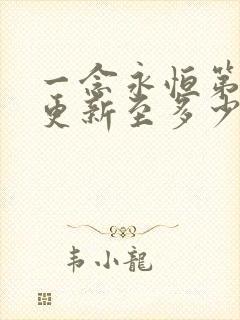 一念永恒第
更新至多少
韦小龍